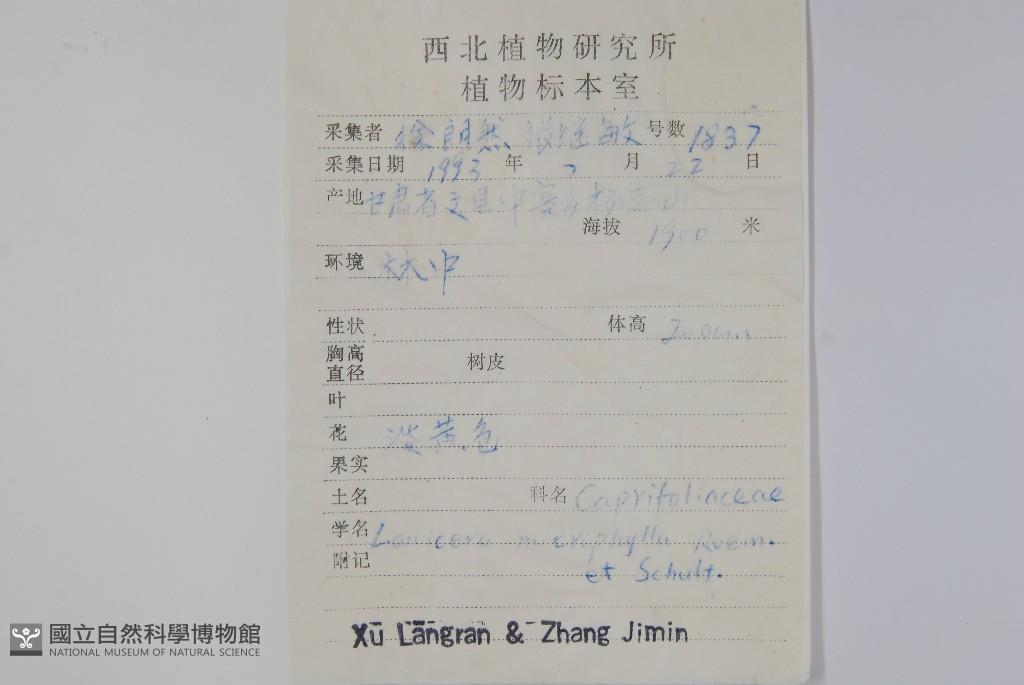 西北植物研究所
植物标本室
采集者 徐朗然 张继敏 号数 1837
采集日期 1993 年 7 月 22 日
产地 甘肃省文县中寨乡
海拔 1900 米
环境 林中
性状 体高
胸高直径 树皮
叶
花 淡黄色
果实
土名 科名 Caprifoliaceae
学名 Lonicera microphylla Roem.
附记 et Schult.
Xū Lāngran & Zhang Jimin
國立自然科學博物館
NATIONAL MUSEUM OF NATURAL SCIENCE